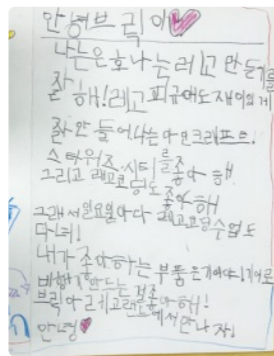 안녕브릭아
나는은호나는레고만들기를
잘 해!레고피규어도재미있게
잘 만들어나는마인크래프트!
스타워즈.시티를좋아해
그리고 레고코딩도좋아해
그래서일요일마다 레고코딩수업도
다녀!
내가좋아하는 부품은기어야!기어로
만드는걸좋아해!
브릭아레고랜드에서만나자!
안녕